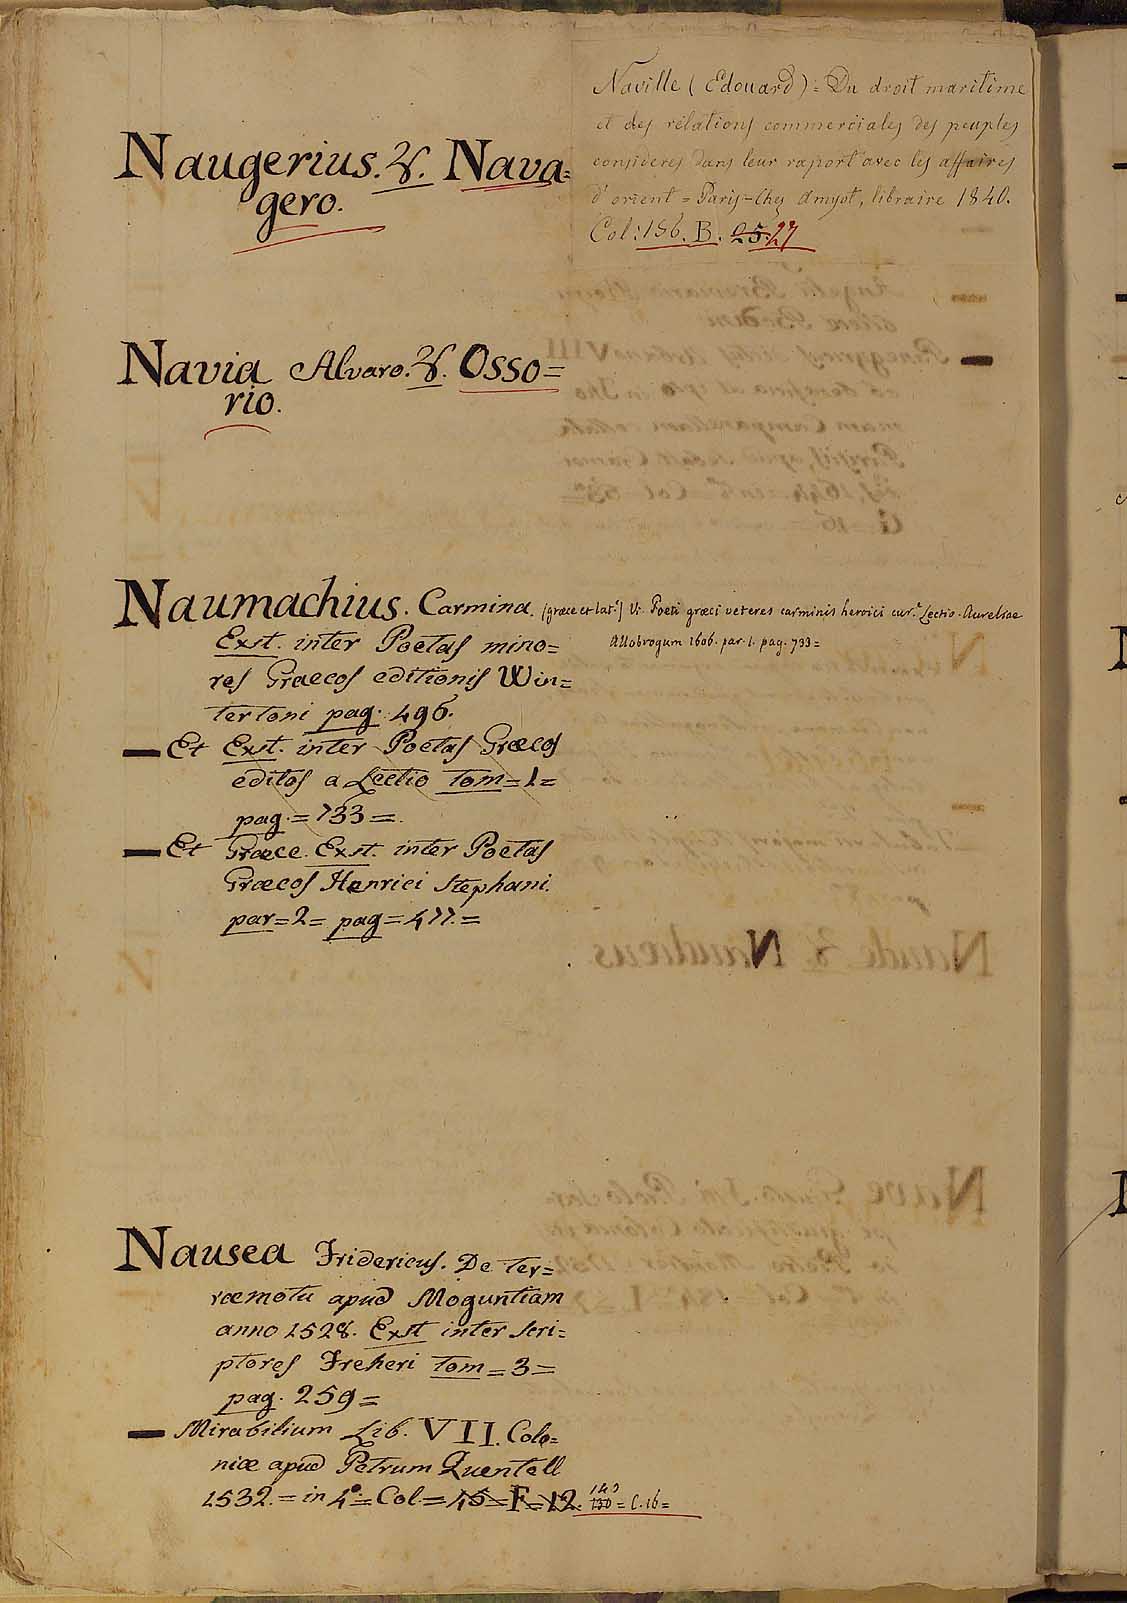 Naville (Edouard) = Du droit maritime
et des rélations commerciales des peuples
consideres dans leur raport avec les affaires
d'orient = Paris = Chez Amyot, libraire 1840.
Col: 156. B. 25. 27
Naugerius. V. Nava=
gero.
Navia Alvaro. V. Osso=
rio.
Naumachius. Carmina. [græce et lat.e] V. Poeti græci veteres carminis heroici cur.a Lectio = Aureliae
Allobrogum 1606. par. 1. pag. 733=
Exst. inter Poetas mino=
res Graecos editionis Win=
tertoni pag. 496.
— Et Exst. inter Poetas Græcos
editos a Lectio tom = 1 =
pag. = 733 =
— Et Græce. Exst. inter Poetas
Græcos Henrici Stephani.
par = 2 = pag = 477. =
Nausea Fridericus. De ter=
ræmotu apud Moguntiam
anno 1528. Exst inter Scri=
ptores Freheri tom = 3 =
pag. 259 =
— Mirabilium Lib. VII. Colo=
niæ apud Petrum Quentell
1532. = in 4º = Col = 45 = F = 12. 130 = C. 16 =
140